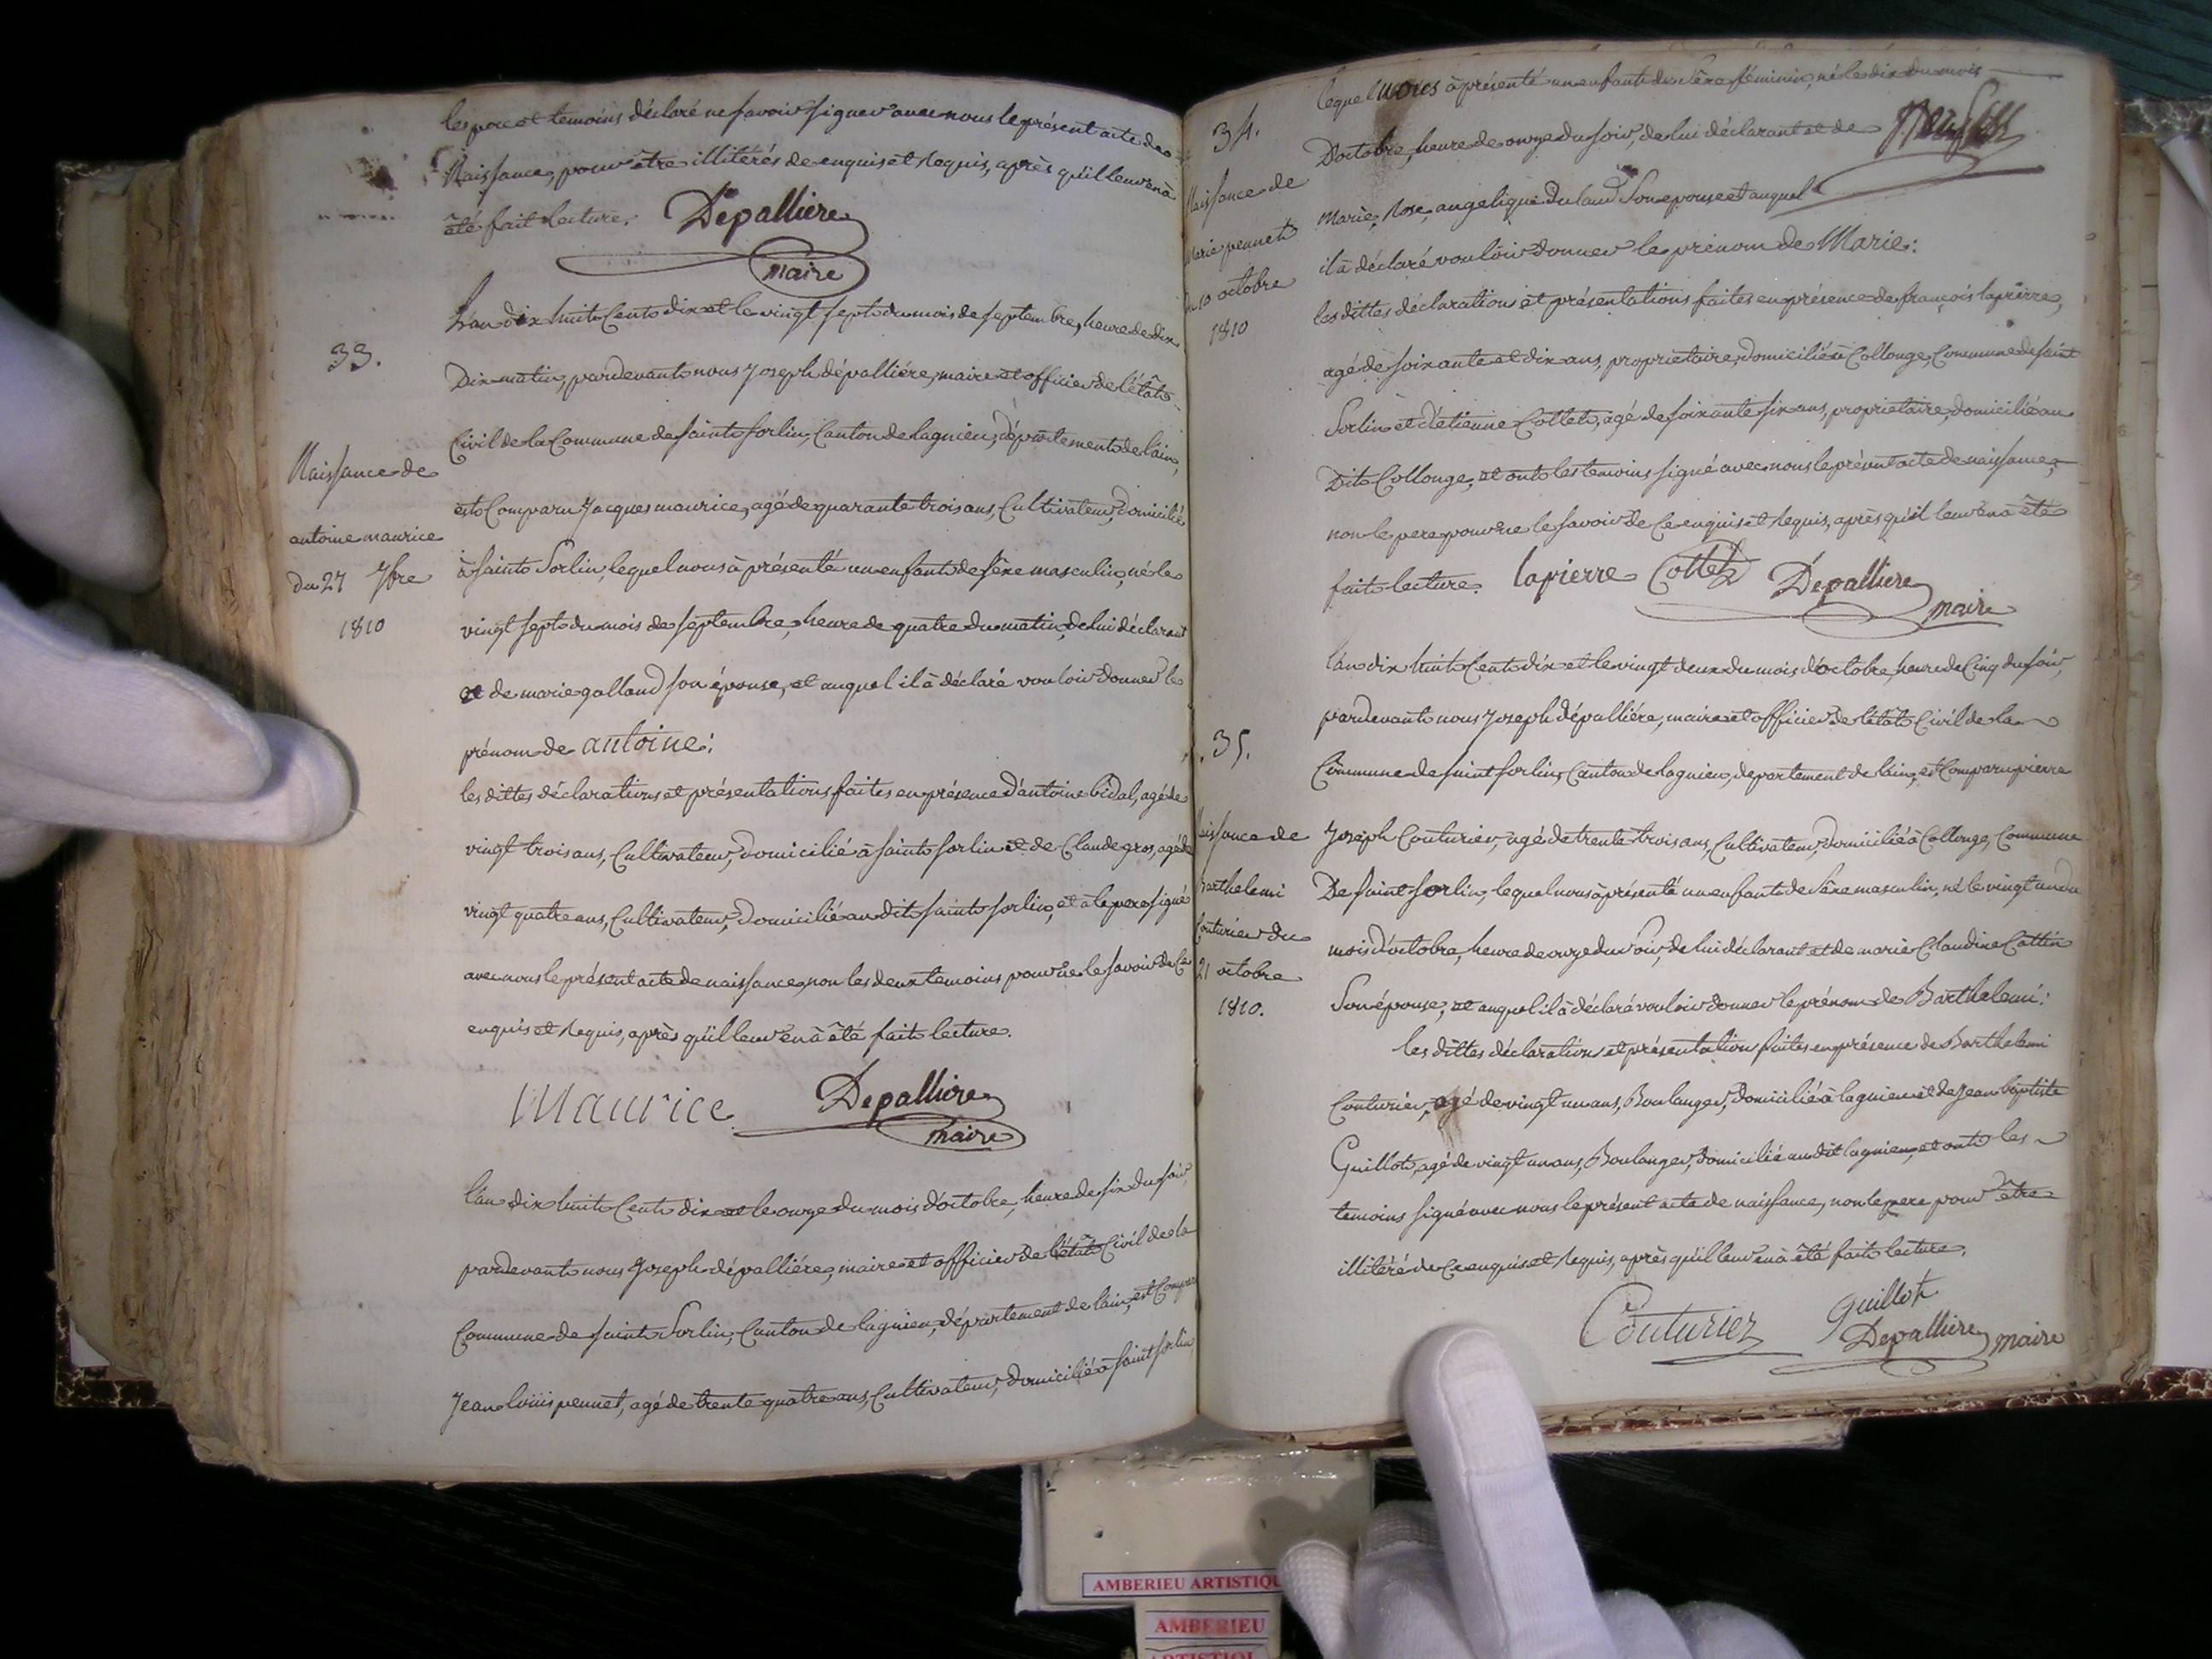 les pere et temoins déclaré ne savoir signer avec nous le présent acte de
Naissance, pour être illitérés de enquis et requis, après qu'il leur en à
été fait lecture. Dépalliere
maire
33.
L'an dix huit cent dix et le vingt sept du mois de septembre, heure de dix
Dix matin, pardevant nous Joseph dépalliére, maire et officier de l'état
Civil de la Commune de saint sorlin, Canton de lagnieu, département de l'ain,
Naissance de
antoine maurice
du 27 7bre
1810
est Comparu Jacques maurice, agé de quarante trois ans, Cultivateur, domicilié
à saint Sorlin, lequel nous à présenté un enfant de sexe masculin, né le
vingt sept du mois de septembre, heure de quatre du matin, de lui déclarant
et de marie galland son épouse, et auquel il à déclaré vouloir donner le
prénom de antoine:
les dittes déclarations et présentations faites en présence d'antoine bidal, agé de
vingt trois ans, Cultivateur, domicilié à saint sorlin et de Claude gros, agé de
vingt quatre ans, Cultivateur, domicilié au dit saint sorlin, et à le pere signé
avec nous le présent acte de naissance, non les deux temoins pour ne le savoir de Ce
enquis et requis, après qu'il leur en à été fait lecture.
Maurice Depalliere
maire
l'an dix huit Cent dix et le onze du mois d'octobre, heure de six du soir,
pardevant nous Joseph dépalliére, maire et officier de l'état Civil de la
Commune de saint Sorlin, Canton de lagnieu, département de l'ain, est Comparu
Jean louis pennet, agé de trente quatre ans, Cultivateur, domicilié à saint sorlin
34.
Naissance de
Marie pennet
du 10 octobre
1810
lequel nous à présenté un enfant du sexe féminin, né le dix du mois
D'octobre, heure de onze du soir, de lui déclarant et de
Marie, Rose, angelique Dulaud Son epouse et auquel
il à déclaré vouloir donner le prénom de Marie:
les dittes déclarations et présentations faites en présence de françois lapierre,
agé de soixante et dix ans, proprietaire, domicilié à Collonge, Commune de saint
Sorlin et d'étienne Collet, agé de soixante six ans, proprietaire, domicilié au
Dit Collonge, et ont les temoins signé avec nous le présent acte de naissance,
non le pere pour ne le savoir de Ce enquis et requis, après qu'il leur en à été
fait lecture. lapierre Collet Dépalliere
maire
35.
Naissance de
Barthelemi
Couturier du
21 octobre
1810.
l'an dix huit Cent dix et le vingt deux du mois d'octobre, heure de Cinq du soir,
pardevant nous Joseph dépalliére, maire et officier de l'état Civil de la
Commune de saint sorlin, Canton de lagnieu, departement de l'ain, est Comparu pierre
Joseph Couturier, agé de trente trois ans, Cultivateur, domicilié à Collonge, Commune
De saint sorlin, lequel nous à présenté un enfant de sexe masculin, né le vingt un du
mois d'octobre, heure de onze du soir, de lui déclarant et de marie Claudine Cottin
Son épouse, et auquel il à déclaré vouloir donner le prénom de Barthelemi:
les dittes déclaration et présentation faites en présence de Barthelemi
Couturier, agé de vingt un ans, Boulanger, domicilié à lagnieu et de Jean baptiste
Guillot, agé de vingt un ans, Boulanger, domicilié au dit lagnieu, et ont les
temoins signé avec nous le présent acte de naissance, non le pere pour être
illitéré de Ce enquis et requis, après qu'il leur en à été fait lecture.
Couturier Guillot
Depalliere maire
AMBERIEU ARTISTIQU
AMBERIEU
ARTISTIQU